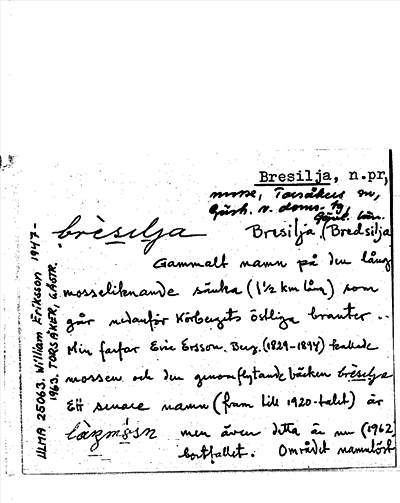 Bresilja, n.pr,
mosse, Torsåkers sn,
Gästr. v. doms. tg,
Gävl. län.
brèsilja Bresilja (Bredsilja
Gammalt namn på den lång
mosseliknande sänka (1½ km lån) som
går nedanför Körbergets östliga branter ..
Min farfar Eric Ersson. Berg. (1829-1894) kallade
mossen och den genomflytande bäcken brèsilja
Ett senare namn (fram till 1920-talet) är
men även detta är nu (1962
bortfallet. Området namnlöst
ULMA 25063. William Eriksson 1947-
1963. TORSÅKER, GÄSTR.